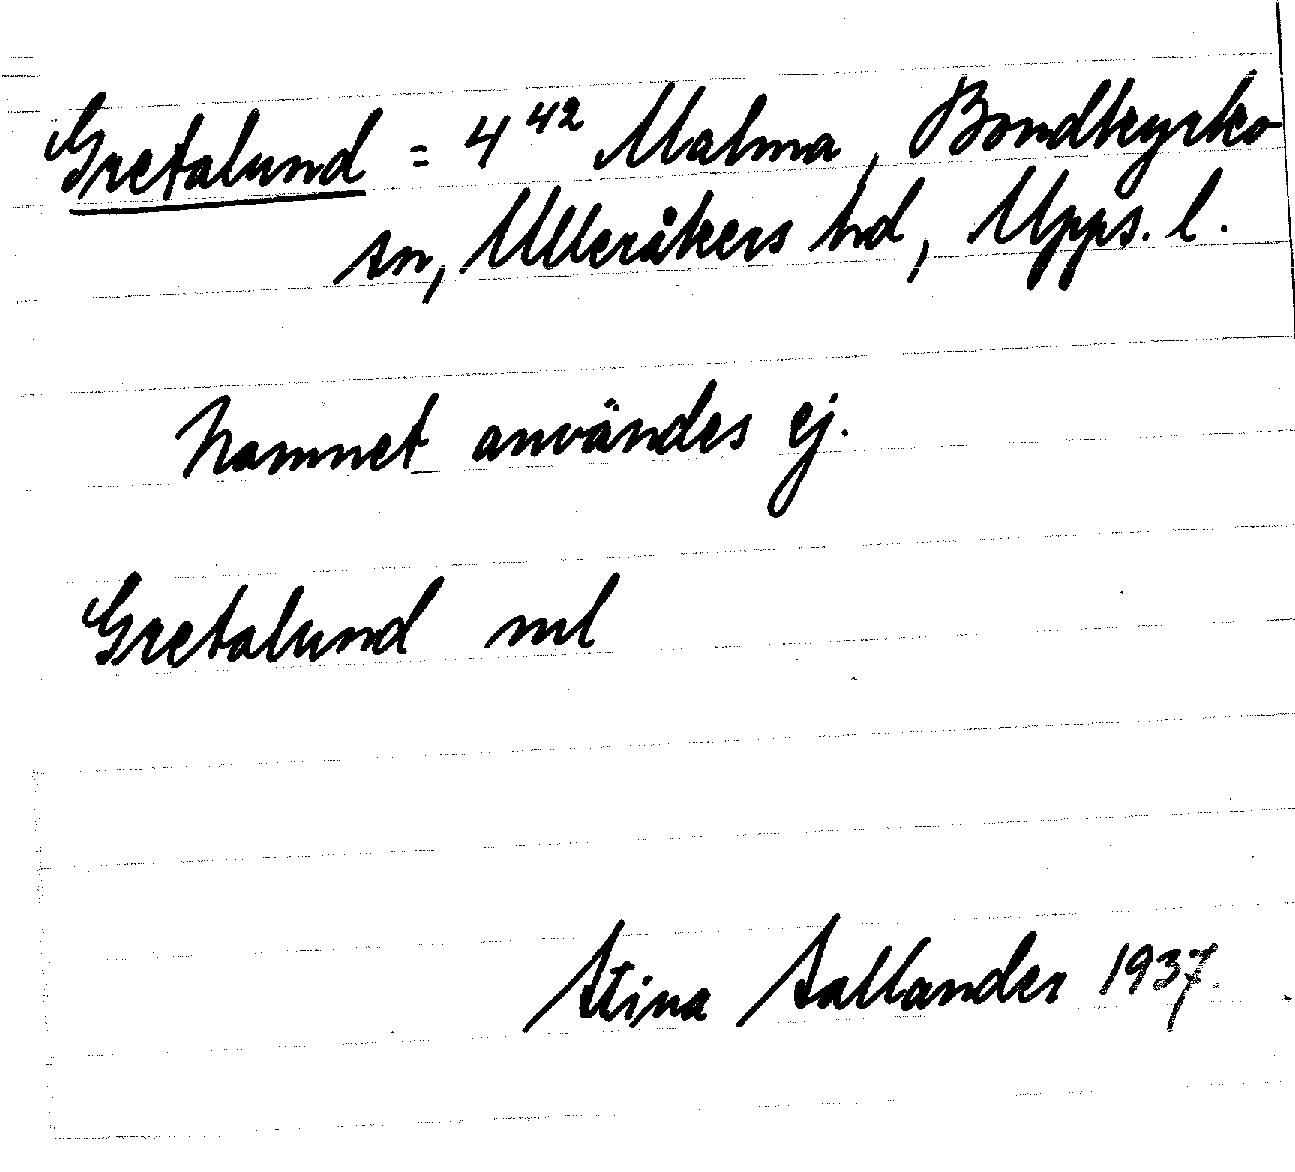 Gretalund = 4⁴² Malma, Bondkyrko
sn, Ulleråkers hd, Upps. l.
Namnet användes ej.
Gretalund ml
Stina Sallander 1937.